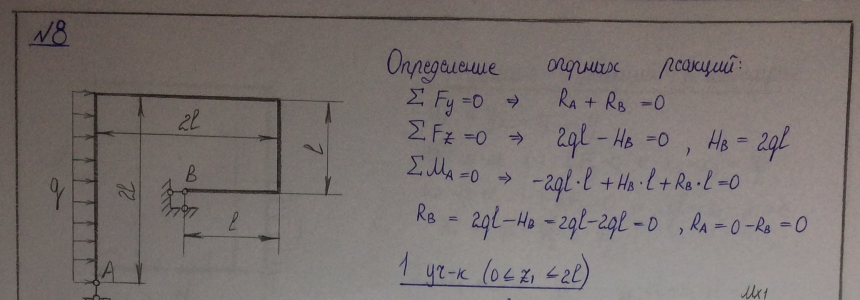 №8
Определение опорных реакций:
Σ Fy = 0 ⇒ RA + RB = 0
Σ Fz = 0 ⇒ 2ql − HB = 0 , HB = 2ql
Σ MA = 0 ⇒ −2ql·l + HB·l + RB·l = 0
RB = 2ql − HB = 2ql − 2ql = 0 , RA = 0 − RB = 0
1 уч-к (0 ≤ z1 ≤ 2l)
Mx1
2l
l
B
q
2l
l
A